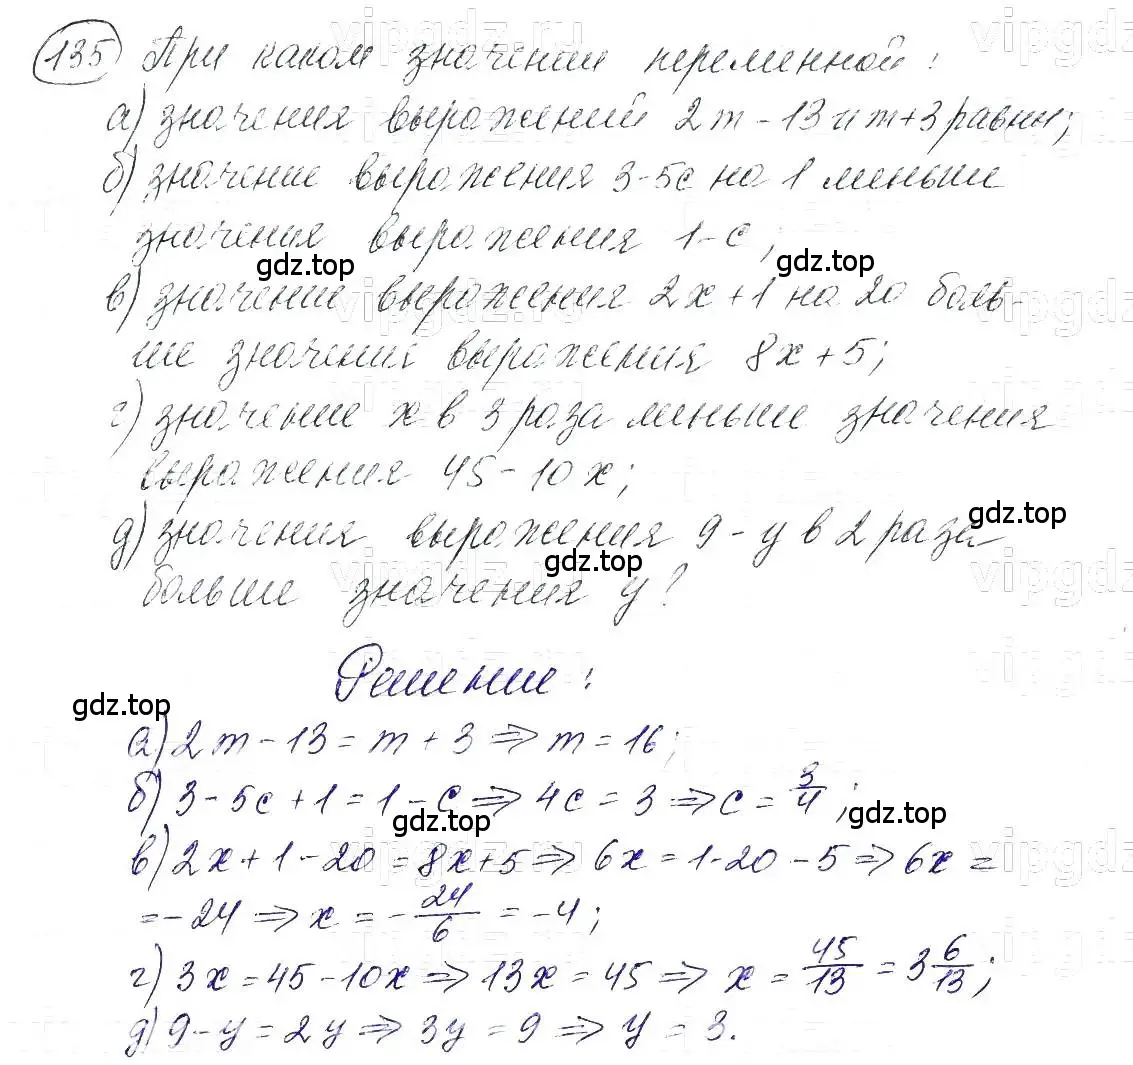 135 При каком значении переменной:
а) значения выражений 2m - 13 и m+3 равны;
б) значение выражения 3-5c на 1 меньше
значения выражения 1-c;
в) значение выражения 2x+1 на 20 боль-
ше значения выражения 8x+5;
г) значение x в 3 раза меньше значения
выражения 45-10x;
д) значения выражения 9-y в 2 раза
больше значения y?
Решение:
а) 2m-13=m+3 ⇒ m=16;
б) 3-5c+1=1-c ⇒ 4c=3 ⇒ c=3/4;
в) 2x+1-20=8x+5 ⇒ 6x=1-20-5 ⇒ 6x=
=-24 ⇒ x=-24/6=-4;
г) 3x=45-10x ⇒ 13x=45 ⇒ x=45/13=3 6/13;
д) 9-y=2y ⇒ 3y=9 ⇒ y=3.
gdz.top
gdz.top
gdz.top
gdz.top
gdz.top
gdz.top
gdz.top
vipgdz.ru
vipgdz